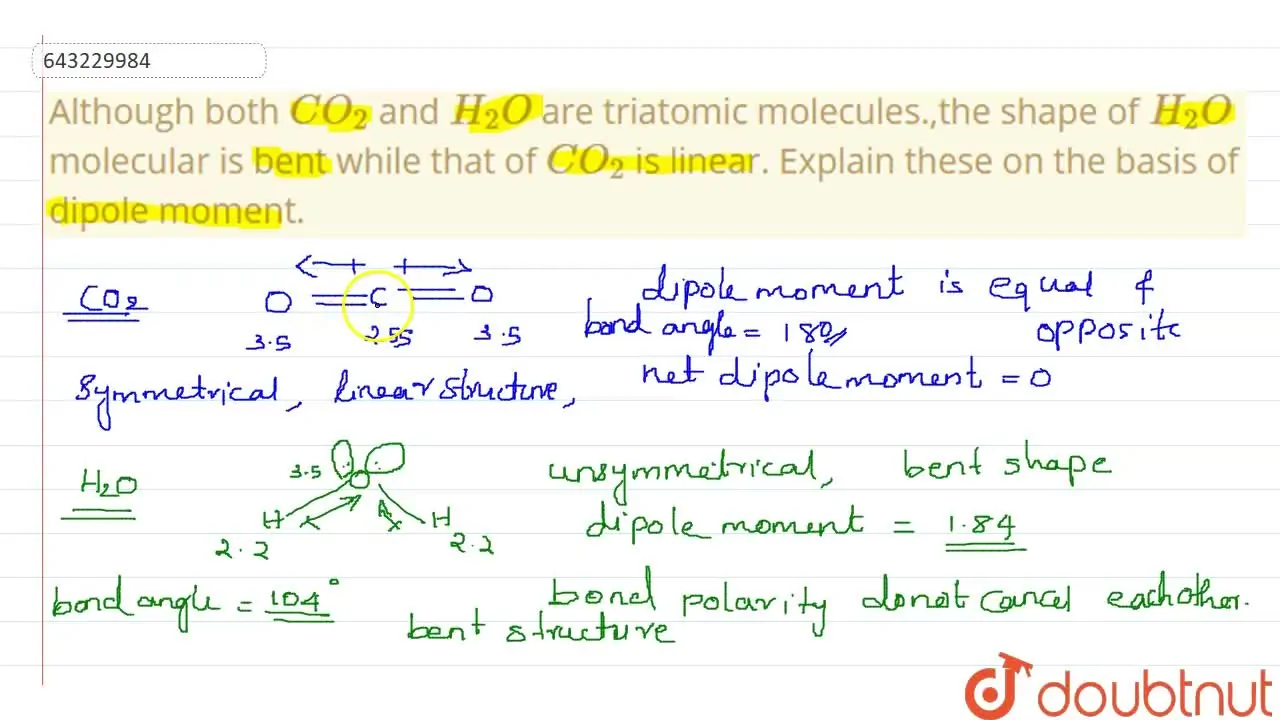 643229984
Although both CO₂ and H₂O are triatomic molecules.,the shape of H₂O
molecular is bent while that of CO₂ is linear. Explain these on the basis of
dipole moment.
CO₂ O = C = O dipole moment is equal &
3.5 2.55 3.5 bond angle = 180° opposite
Symmetrical, linear structure, net dipole moment = 0
H₂O 3.5 O unsymmetrical, bent shape
H H dipole moment = 1.84
2.2 2.2
bond angle = 104° bond polarity donot cancel eachother.
bent structure
doubtnut